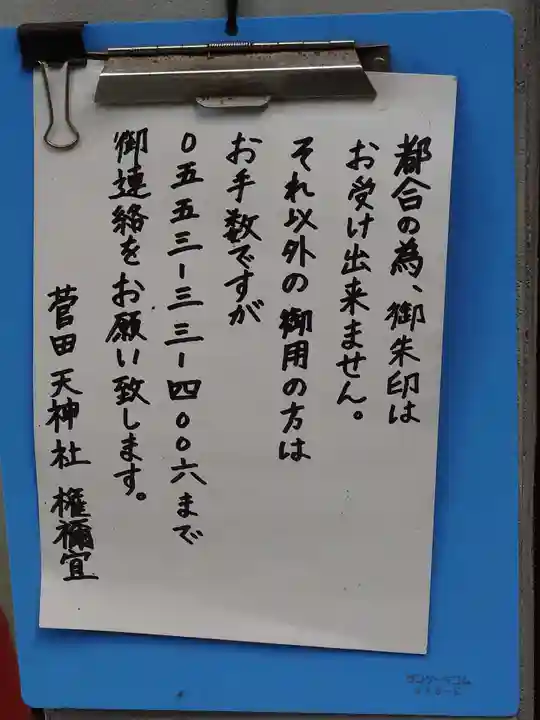 都合の為、御朱印は
お受け出来ません。
それ以外の御用の方は
お手数ですが
〇五五三-三三-四〇〇六まで
御連絡をお願い致します。
菅田天神社 権禰宜